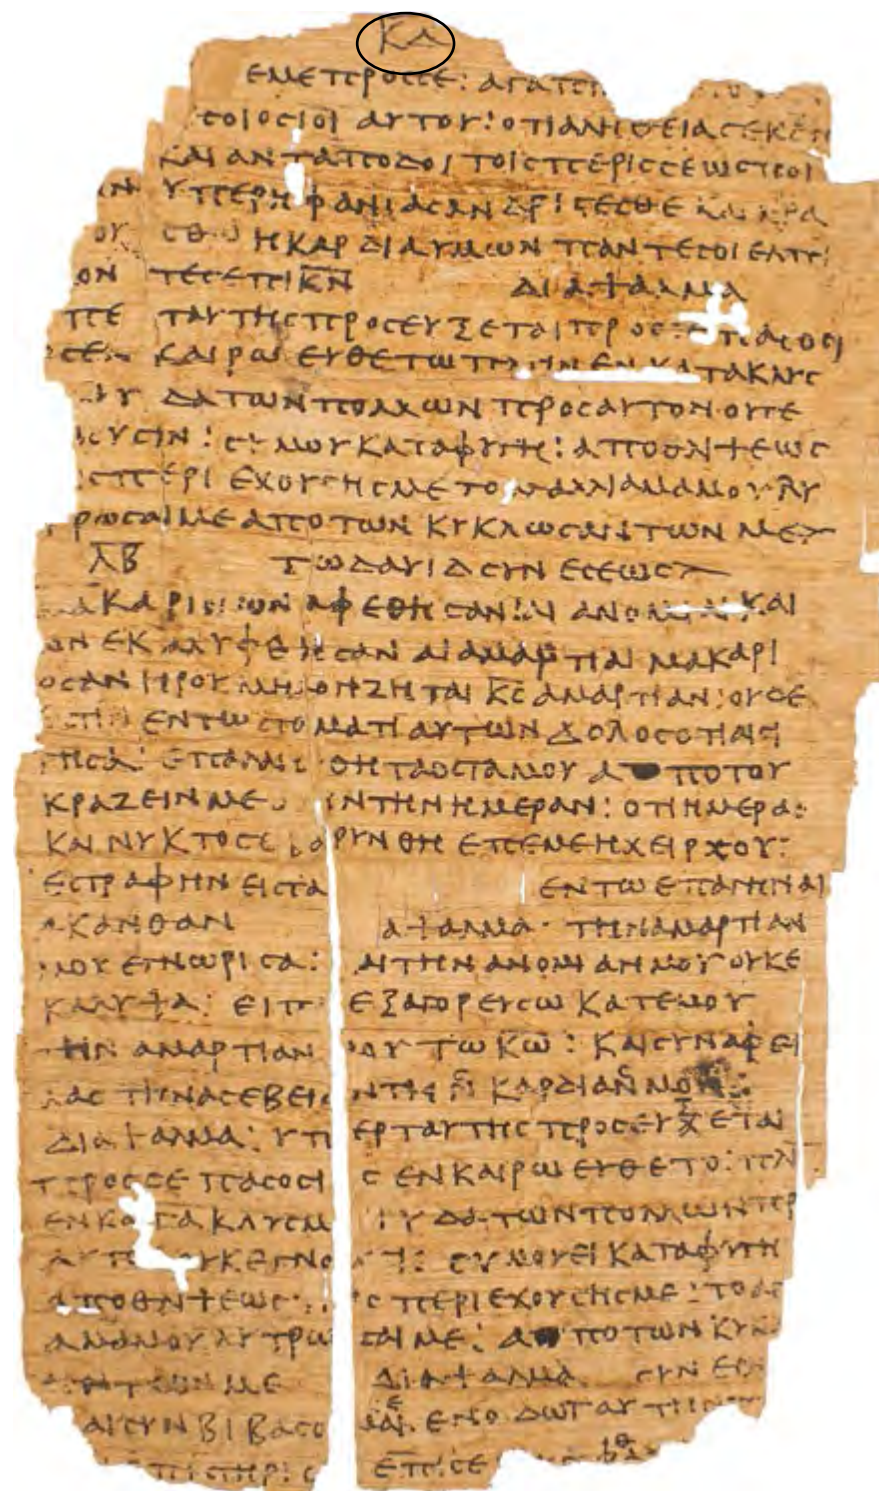 ΚΑ
ΕΜΕΠΡΟΣΣΕ: ΑΓΑΠ
ΣΟΙΟΣΙΟΙ ΑΥΤΟΥ: ΟΤΙΑΛΗΘΕΙΑΣΕΚΖΗ
ΚΑΙ ΑΝΤΑΠΟΔΟΙ ΤΟΙΣΠΕΡΙΣΣΕΩΣΠΟΙ
ΥΠΕΡΗΦΑΝΙΑΣΑΝΔΡΙΖΕΣΘΕ ΚΑΙ ΚΡΑ
ΣΘΩ ΗΚΑΡΔΙΑΥΜΩΝ ΠΑΝΤΕΣΟΙ ΕΛΠΙ
ΟΝ ΤΕΣΕΠΙΚΝ ΔΙΑΨΑΛΜΑ
ΠΕ ΤΑΥΤΗΣΠΡΟΣΕΥΞΕΤΑΙΠΡΟΣ ΠΑΣΟΣΙ
ΚΑΙΡΩ ΕΥΘΕΤΩΠΛΗΝΕΝ ΚΑΤΑΚΛΥΣ
ΥΔΑΤΩΝΠΟΛΛΩΝ ΠΡΟΣΑΥΤΟΝ ΟΥΓΕ
ΟΥΣΙΝ: ΣΥ ΜΟΥ ΚΑΤΑΦΥΓΗ: ΑΠΟΘΛΙΨΕΩΣ
ΣΠΕΡΙΕΧΟΥΣΗΣΜΕ ΤΟΑΓΑΛΛΙΑΜΑΜΟΥ ΛΥ
ΤΡΩΣΑΙΜΕ ΑΠΟ ΤΩΝ ΚΥΚΛΩΣΑΝΤΩΝ ΜΕ>
ΛΒ ΤΩΔΑΥΙΔ ΣΥΝΕΣΕΩΣ>
ΜΑΚΑΡΙΟΙ ΩΝ ΑΦΕΘΗΣΑΝ ΑΙ ΑΝΟΜΙΑΙ ΚΑΙ
ΩΝ ΕΚΑΛΥΦΘΗΣΑΝ ΑΙΑΜΑΡΤΙΑΙ ΜΑΚΑΡΙ
ΟΣΑΝΗΡΟΥ ΜΗ ΛΟΗΖΗΤΑΙ ΚΣ ΑΜΑΡΤΙΑΝ: ΟΥΣΕ
ΣΤΙΝ ΕΝΤΩ ΣΤΟΜΑΤΙ ΑΥΤΩΝ ΔΟΛΟΣΟΤΙΑΙΣΙ
ΓΗΣΑ: ΕΠΑΛΑΙΩΘΗ ΤΑΟΣΤΑΜΟΥ ΑΠΟΤΟΥ
ΚΡΑΖΕΙΝΜΕ ΤΗΝΗΜΕΡΑΝ: ΟΤΙΗΜΕΡΑ:
ΚΑΙ ΝΥΚΤΟΣΕΒΑΡΥΝΘΗ ΕΠΕΜΕΗΧΕΙΡΧΟΥ:
ΕΣΤΡΑΦΗΝ ΕΙΣΤΑ ΕΝΤΩΕΠΑΓΗΝΑΙ
ΑΚΑΝΘΑΝ ΑΨΑΛΜΑ· ΤΗΝΑΜΑΡΤΙΑΝ
ΜΟΥ ΕΓΝΩΡΙΣΑ: ΑΙ ΤΗΝ ΑΝΟΜΙΑΝ ΜΟΥ ΟΥΚΕ
ΚΑΛΥΨΑ: ΕΙΠ ΕΞΑΓΟΡΕΥΣΩ ΚΑΤΕΜΟΥ
ΤΗΝ ΑΜΑΡΤΙΑΝ ΜΟΥ ΤΩ ΚΩ: ΚΑΙ ΣΥΝΑΦΕΙ
ΛΑΣ ΤΗΝΑΣΕΒΕΙΑΝ ΤΗΣ ΚΑΡΔΙΑΝ ΜΟΥ
ΔΙΑΨΑΛΜΑ: ΥΠΕΡΤΑΥΤΗΣ ΠΡΟΣΕΥΧΕΤΑΙ
ΠΡΟΣΣΕ ΠΑΣΟΣΙΟΣ ΕΝΚΑΙΡΩ ΕΥΘΕΤΟ: ΠΛ
ΕΝΚΑΤΑΚΛΥΣΜ ΥΔΑΤΩΝΠΟΛΛΩΝΠΡ
ΑΥΤ ΟΥΚΕΓΓΝΟ ΣΥ ΜΟΥΕΙ ΚΑΤΑΦΥΓΗ
ΑΠΟΘΛΙΨΕΩΣ ΣΠΕΡΙΕΧΟΥΣΗΣΜΕ: ΤΟΑΓ
ΑΜΑΜΟΥ ΛΥΤΡΩΣΑΙΜΕ: ΑΠΟΤΩΝ ΚΥΚ
ΤΩΝ ΜΕ ΔΙΑΨΑΛΜΑ ΣΥΝΕ
ΑΙΣΥΝΒΙΒΑΣΩ ΕΝΟΔΩΤΑΥΤΗ
ΕΠΙΣΕ